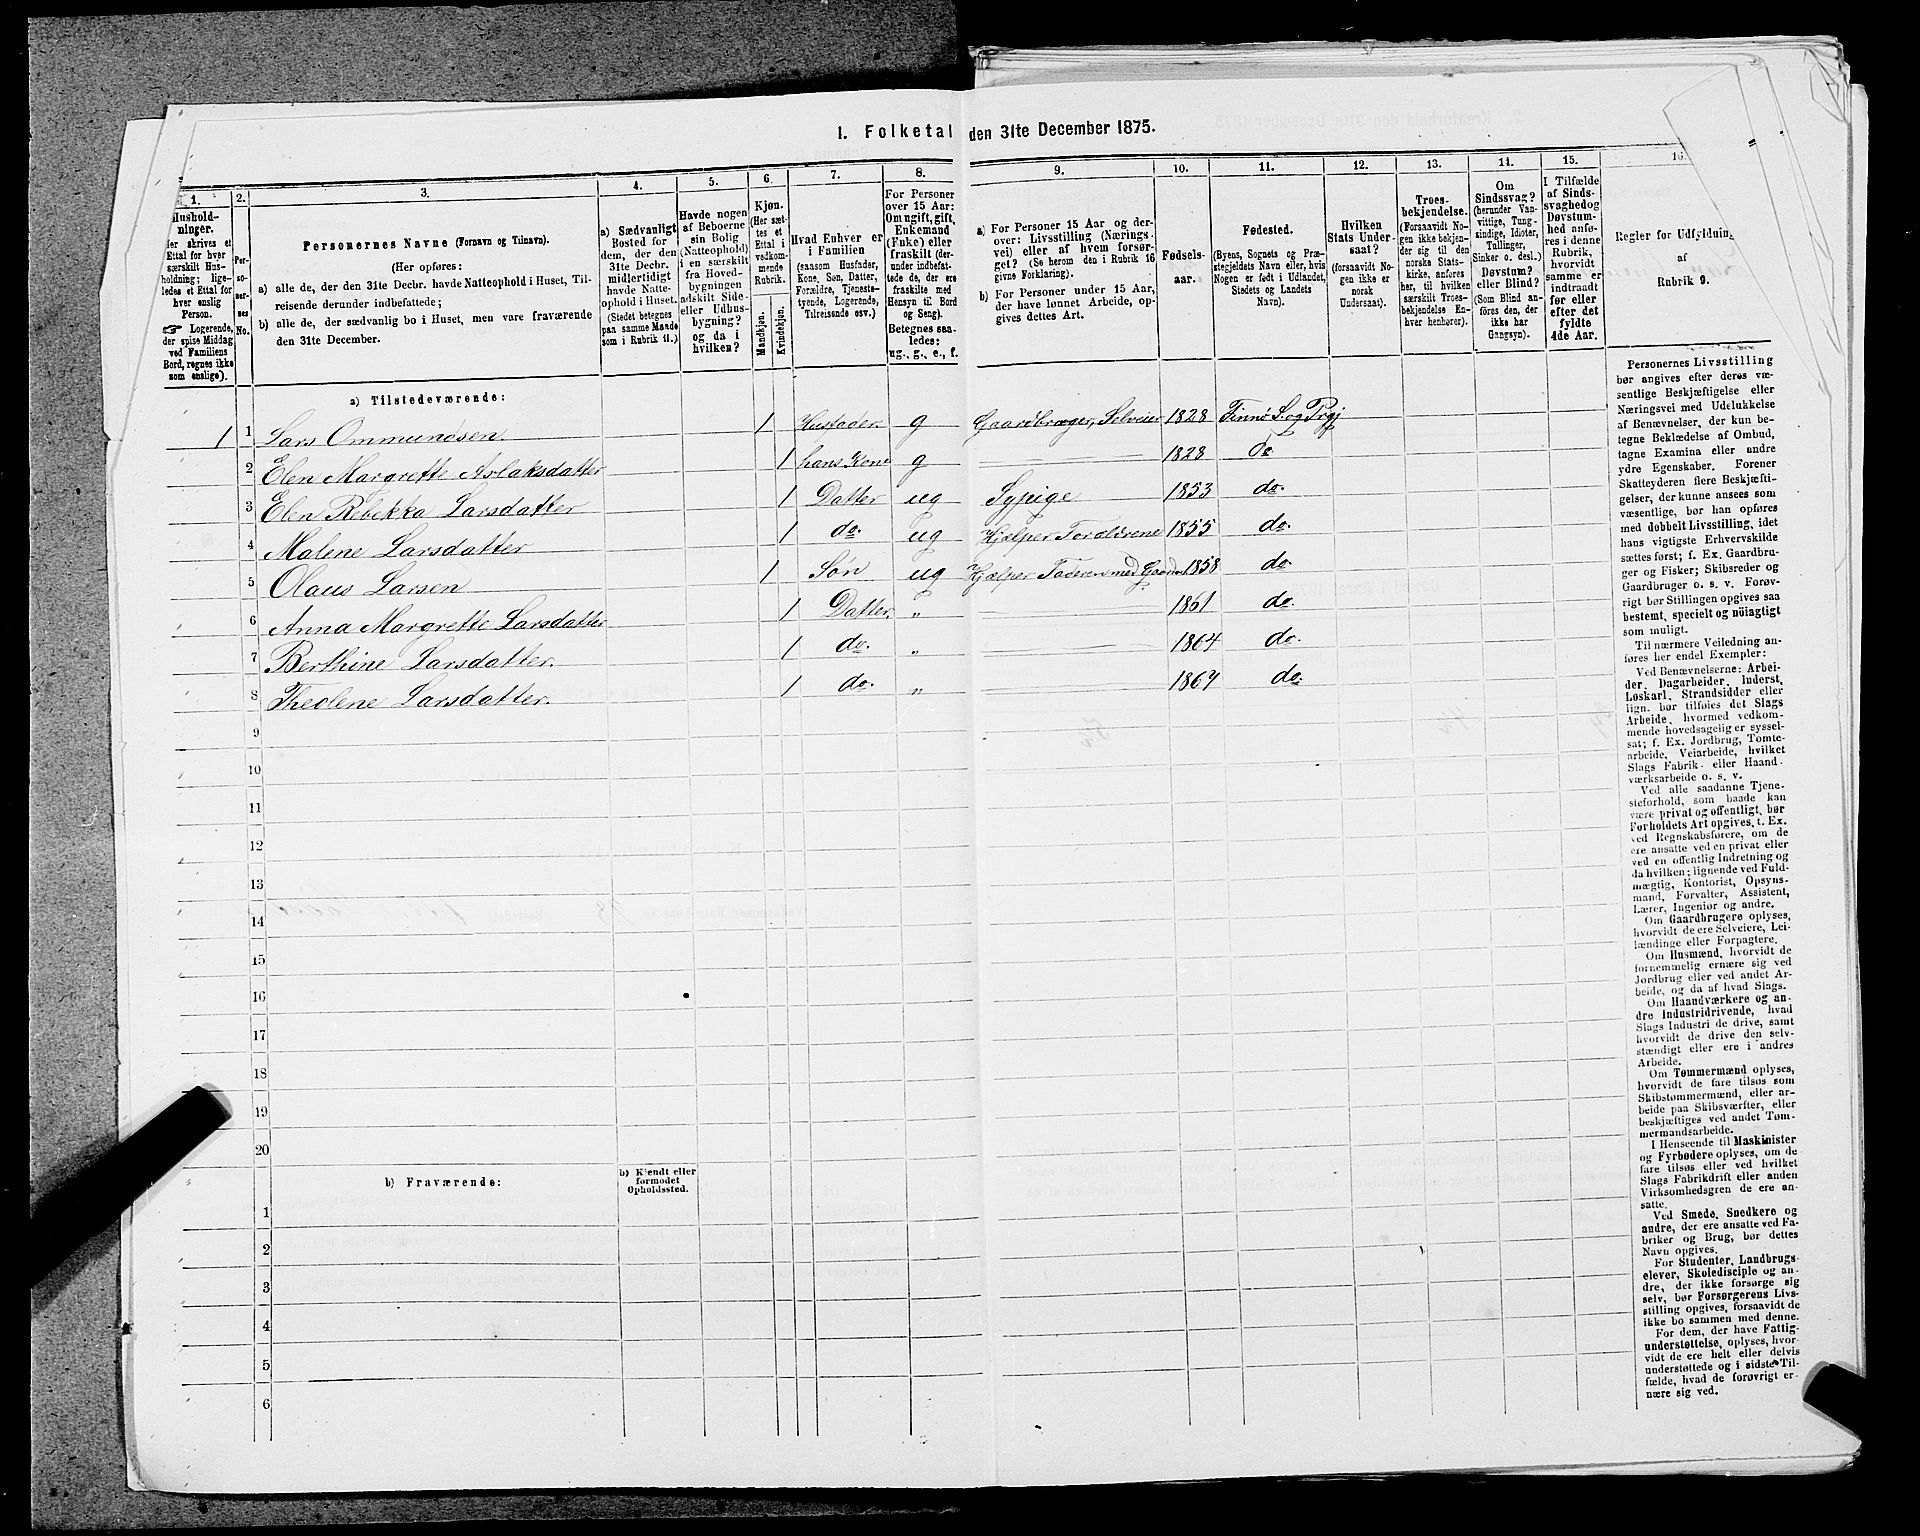 1. Folketal den 31te December 1875.
1. 2. 3. 4. 5. 6. 7. 8. 9. 10. 11. 12. 13. 14. 15. 16.
Hushold-
ninger.
ærskilt Hus-
holdning; lige-
ledes et Ettal for
hver enslig
Person.
Logerende,
der spise Middag
ved Familiens
Bord, regnes ikke
som enslige).
Per-
so-
ner-
nes
No.
Personernes Navne (Fornavn og Tilnavn).
(Her opføres:
a) alle de, der den 31te Decbr. havde Natteophold i Huset, Til-
reisende derunder indbefattede;
b) alle de, der sædvanlig bo i Huset, men vare fraværende
den 31te December.
a) Sædvanligt
Bosted for
dem, der den
31te Decbr.
midlertidigt
havde Natte-
ophold i Huset.
(Stedet betegnes
paa samme Maade
som i Rubrik 11.)
Havde nogen
af Beboerne
sin Bolig
(Natteophold)
i en særskilt
fra Hoved-
bygningen
adskilt Side-
eller Udhus-
bygning?
og da i
hvilken?
Kjøn.
(Her sæt-
tes et
Ettal i
vedkom-
mende
Rubrik.
Mandkjøn.
Kvindekjøn.
Hvad Enhver er
i Familien
(saasom Husfader,
Kone, Søn, Datter,
Forældre, Tjeneste-
tyende, Logerende,
Tilreisende osv.)
For Personer
over 15 Aar:
Om ugift, gift,
Enkemand
(Enke) eller
fraskilt (der-
under indbefat-
tede de, der ere
fraskilte med
Hensyn til Bord
og Seng).
Betegnes saa-
ledes:
ug., g., e., f.
a) For Personer 15 Aar og der-
over: Livsstilling (Nærings-
vei) eller af hvem forsør-
get? (Se herom den i Rubrik 16
givne Forklaring).
b) For Personer under 15 Aar,
der have lønnet Arbeide, op-
gives dettes Art.
Fødsels-
aar.
Fødested.
(Byens, Sognets og Præ-
stegjeldets Navn eller, hvis
Nogen er født i Udlandet,
Stedets og Landets
Navn).
Hvilken
Stats Under-
saat?
(forsaavidt No-
gen ikke er
norsk
Undersaat).
Troes-
bekjendelse.
(Forsaavidt No-
gen ikke bekjen-
der sig til den
norske Stats-
kirke, anføres
her, til hvilken
særskilt Troes-
bekjendelse En-
hver henhører).
Om
Sindssvag?
(herunder Van-
vittige, Tung-
sindige, Idioter,
Tullinger,
Sinker o. desl.)
Døvstum?
eller Blind?
(Som Blind an-
føres den, der
ikke har
Gangsyn).
I Tilfælde
af Sinds-
svaghed og
Døvstum-
hed anfø-
res i denne
Rubrik,
hvorvidt
samme er
indtraadt
før eller
efter det
fyldte
4de Aar.
Regler for Udfyldning
af
Rubrik 9.
a) Tilstedeværende:
1 1 Lars Ommundsen. 1 Husfader g Gaardbruger, Selveier 1828 Finnø S. og Prgj
2 Elen Margrette Aslaksdatter 1 hans Kone g 1828 do
3 Elen Rebekka Larsdatter 1 Datter ug Sypige 1853 do.
4 Malene Larsdatter 1 do. ug Hjælper Forældrene 1855 do.
5 Olaus Larsen 1 Søn ug Hjælper Faderen med Gaarden 1858 do.
6 Anna Margrette Larsdatter 1 Datter „ 1861 do.
7 Berthine Larsdatter. 1 do. „ 1864 do.
8 Theolene Larsdatter. 1 do. „ 1867 do.
9
10
11
12
13
14
15
16
17
18
19
20
b) Fraværende: b) Kjendt eller
formodet
Opholdssted.
1
2
3
4
5
6
Personernes Livsstilling
bør angives efter deres væ-
sentlige Beskjæftigelse eller
Næringsvei med Udelukkelse
af Benævnelser, der kun be-
tegne Beklædelse af Ombud,
tagne Examina eller andre
ydre Egenskaber. Forener
Skatteyderen flere Beskjæfti-
gelser, der kunne ansees som
væsentlige, bør han opføres
med dobbelt Livsstilling, idet
hans vigtigste Erhvervskilde
sættes først; f. Ex. Gaardbru-
ger og Fisker; Skibsreder og
Gaardbruger o. s. v. Forøv-
rigt bør Stillingen opgives saa
bestemt, specielt og nøiagtigt
som muligt.
Til nærmere Veiledning an-
føres her endel Exempler:
Ved Benævnelserne: Arbei-
der, Dagarbeider, Inderst,
Løskarl, Strandsidder eller
lign. bør tilføies det Slags
Arbeide, hvormed vedkom-
mende hovedsagelig er syssel-
sat; f. Ex. Jordbrug, Tomte-
arbeide, Veiarbeide, hvilket
Slags Fabrik- eller Haand-
værksarbeide o. s. v.
Ved alle saadanne Tjene-
steforhold, som baade kan
være privat og offentligt, bør
Forholdets Art opgives, t. Ex.
ved Regnskabsførere, om de
ere ansatte ved en privat eller
ved en offentlig Indretning og
da hvilken; lignende ved Fuld-
mægtig, Kontorist, Opsyns-
mand, Forvalter, Assistent,
Lærer, Ingeniør og andre.
Om Gaardbrugere oplyses,
hvorvidt de ere Selveiere, Lei-
lændinge eller Forpagtere.
Om Husmænd, hvorvidt de
fornemmelig ernære sig ved
Jordbrug eller ved andet Ar-
beide, og da af hvad Slags.
Om Haandværkere og an-
dre Industridrivende, hvad
Slags Industri de drive, samt
hvorvidt de drive den selv-
stændigt eller ere i andres
Arbeide.
Om Tømmermænd oplyses,
hvorvidt de fare tilsøs som
Skibstømmermænd, eller ar-
beide paa Skibsværfter, eller
beskjæftiges ved andet Tøm-
mermandsarbeide.
I Henseende til Maskinister
og Fyrbødere oplyses, om de
fare tilsøs eller ved hvilket
Slags Fabrikdrift eller anden
Virksomhedsgren de ere an-
satte.
Ved Smede, Snedkere og
andre, der ere ansatte ved Fa-
briker og Brug, bør dettes
Navn opgives.
For Studenter, Landbrugs-
elever, Skoledisciple og an-
dre, der ikke forsørge sig
selv, bør Forsørgerens Livs-
stilling opgives, forsaavidt de
ikke bo sammen med denne.
For dem, der have Fattig-
understøttelse, oplyses, hvor-
vidt de ere helt eller delvis
understøttede og i sidste Til-
fælde, hvad de forøvrigt er-
nære sig ved.